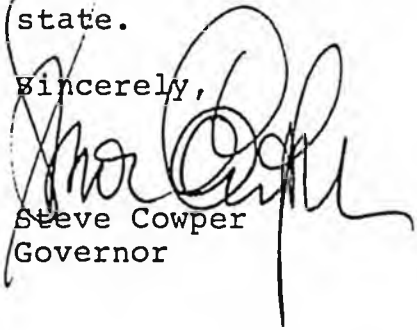 state.
Sincerely,
Steve Cowper
Governor